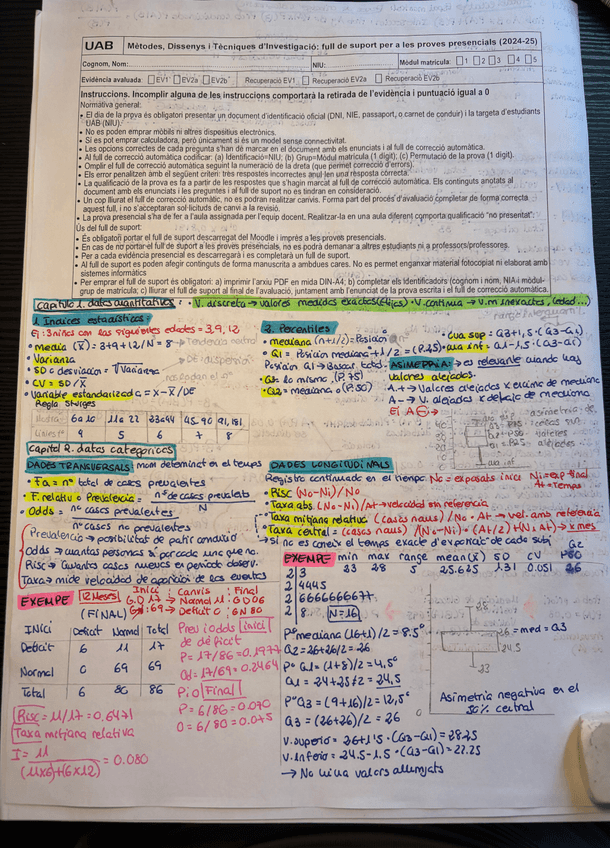 UAB Mètodes, Dissenys i Tècniques d'Investigació: full de suport per a les proves presencials (2024-25)
Cognom, Nom: NIU: Mòdul matrícula: 1 2 3 4 5
Evidència avaluada: EV1 EV2a EV2b Recuperació EV1 Recuperació EV2a Recuperació EV2b
Instruccions. Incomplir alguna de les instruccions comportarà la retirada de l'evidència i puntuació igual a 0
Normativa general:
• El dia de la prova és obligatori presentar un document d'identificació oficial (DNI, NIE, passaport, o carnet de conduir) i la targeta d'estudiants UAB (NIU).
• No es poden emprar mòbils ni altres dispositius electrònics.
• Sí es pot emprar calculadora, però únicament si és un model sense connectivitat.
• Les opcions correctes de cada pregunta s'han de marcar en el document amb els enunciats i al full de correcció automàtica.
• Al full de correcció automàtica codificar: (a) Identificació=NIU; (b) Grup=Mòdul matrícula (1 dígit); (c) Permutació de la prova (1 dígit).
• Omplir el full de correcció automàtica seguint la numeració de la dreta (que permet correcció d'errors).
• Els error penalitzen amb el següent criteri: tres respostes incorrectes anul·len una resposta correcta.
• La qualificació de la prova es fa a partir de les respostes que s'hagin marcat al full de correcció automàtica. Els continguts anotats al
document amb els enunciats i les preguntes i al full de suport no es tindran en consideració.
• Un cop lliurat el full de correcció automàtic, no es podran realitzar canvis. Forma part del procés d'avaluació completar de forma correcta
aquest full, i no s'acceptaran sol·licituds de canvi a la revisió.
• La prova presencial s'ha de fer a l'aula assignada per l'equip docent. Realitzar-la en una aula diferent comporta qualificació "no presentat".
Ús del full de suport:
• És obligatori portar el full de suport descarregat del Moodle i imprès a les proves presencials.
• En cas de no portar el full de suport a les proves presencials, no es podrà demanar a altres estudiants ni a professors/professores.
• Per a cada evidència presencial es descarregarà i es completarà un full de suport.
• Al full de suport es poden afegir continguts de forma manuscrita a ambdues cares. No es permet enganxar material fotocopiat ni elaborat amb
sistemes informàtics
• Per emprar el full de suport és obligatori: a) imprimir l'arxiu PDF en mida DIN-A4; b) completar els identificadors (cognom i nom, NIA i mòdul-
grup de matrícula; c) lliurar el full de suport al final de l'avaluació, juntament amb l'enunciat de la prova escrita i el full de correcció automàtica.
Capítulo 1. datos cuantitativos: • V. discreta → valores medidos exactes • V. continua → V. m inexactes, (edad...)
1. Índices estadísticos:
Ej: 3 niños con las siguientes edades = 3, 9, 12
• media (x̄) = 3+9+12/N = 8
• Varianza
• SD o desviación = √Varianza
• CV = SD/x̄
• Variable estandarizada = x - x̄/DE
Regla Sturges
6 a 10 11 a 22 23 a 44 45-90 91, 181
4 5 6 7 8
2. Percentiles
• mediana (n+1/2) = Posición
• Q1 = Posición mediana + 1/2 = (P.25)
Posición Q1 → Buscar total.
• Q3 = lo mismo, (P.75)
• Q2 = mediana o (P.50)
• Cua sup = Q3 + 1,5 · (Q3 - Q1)
• Cua inf = Q1 - 1,5 · (Q3 - Q1)
ASIMETRIA: → es relevante cuando hay
valores alejados.
A + → Valores alejados x encima de mediana
A - → V. alejados x debajo de mediana
Ej A
Capítol 2. datos categóricos
DADES TRANSVERSALS: mom determinat en el temps
• Fa = nº total de casos prevalentes
• F. relativ o Prevalència = nº de casos prevalents / N
• Odds = nº casos prevalentes / nº casos no prevalentes
Prevalència → posibilitat de patir conducta
Odds → cuantas personas sí por cada una que no.
Risc → Cuantos casos nuevos en període observ.
Taxa → mide velocidad de aparición de los eventos
DADES LONGITUDINALS
Registre continuado en el tiempo No = exposats inici Ni = exp final
Δt = temps
• Risc (No - Ni) / No
• Taxa abs. (No - Ni) / Δt → velocidad sin referencia
• Taxa mitjana relativa (casos nous) / No · Δt → vel. amb referència
• Taxa central = (casos nous) / (No - Ni) · (Δt/2) + (Ni · Δt) → x mes
→ si no es coneix el temps exacte d'exposició de cada subj
EXEMPLE 12 Mesos Inici : Canvis : Final
6 D 17 → Normal 11 : 6 D 06
(FINAL) 69 → Deficit 0 : 6N 80
INICI Deficit Normal Total
Deficit 6 11 17
Normal 0 69 69
Total 6 80 86
Risc = 11/17 = 0,6471
Taxa mitjana relativa
I = 11 / (11x6)+(6x12) = 0.080
Prev i odds inici
de déficit
P = 17/86 = 0.1977
Od = 17/69 = 0.2464
P i O Final
P = 6/86 = 0.070
O = 6/80 = 0.075
EXEMPLE min max range mean(x̄) SD CV Q2 P50
23 28 5 25.625 1.31 0.051 26
2 | 3
2 | 4445
2 | 66666666777
2 | 8 N=16
Pº mediana (16+1)/2 = 8.5º
Q2 = 26+26/2 = 26
Pº Q1 = (1+8)/2 = 4,5º
Q1 = 24+25÷2 = 24,5
Pº Q3 = (9+16)/2 = 12,5º
Q3 = (26+26)/2 = 26
V. superio = 26+1'5 · (Q3 - Q1) = 28.25
V. Inferio = 24.5 - 1.5 · (Q3 - Q1) = 22.25
→ No hi ha valors allunyats
28
26 = med = Q3
24.5
23
Asimetria negativa en el
50% central